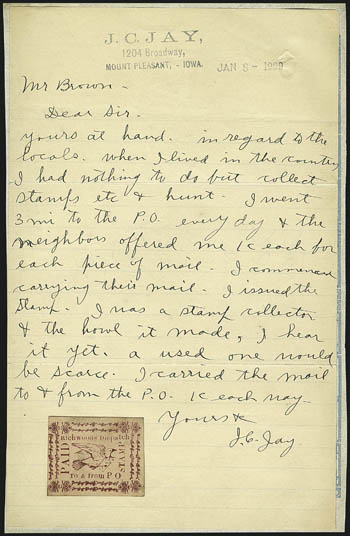 J. C. JAY,
1204 Broadway,
MOUNT PLEASANT, - IOWA.
JAN 8 - 1920
Mr Brown -
Dear Sir.
Yours at hand. in regard to the
locals. when I lived in the country
I had nothing to do but collect
stamps etc & hunt. I went
3 mi to the P.O. every day & the
neighbors offered me 1c each for
each piece of mail. I commenced
carrying their mail. I issued the
stamp. I was a stamp collector
& the howl it made, I hear
it yet. a used one would
be scarce. I carried the mail
to & from the P.O. 1c each way -
Yours &
J. C. Jay.
Richwoods Dispatch
PAID
STAMP
To & from P O